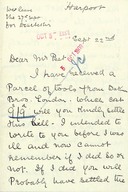 Harport
Sept 22nd
Dear Mr Pat
I have received a
Parcel of Tools from
Bros. London, which cost
£19 Will you kindly settle
this bill. I intended to
write to you before I
was ill and now cannot
remember if I did so or
not. If I did you will
Probably have settled the